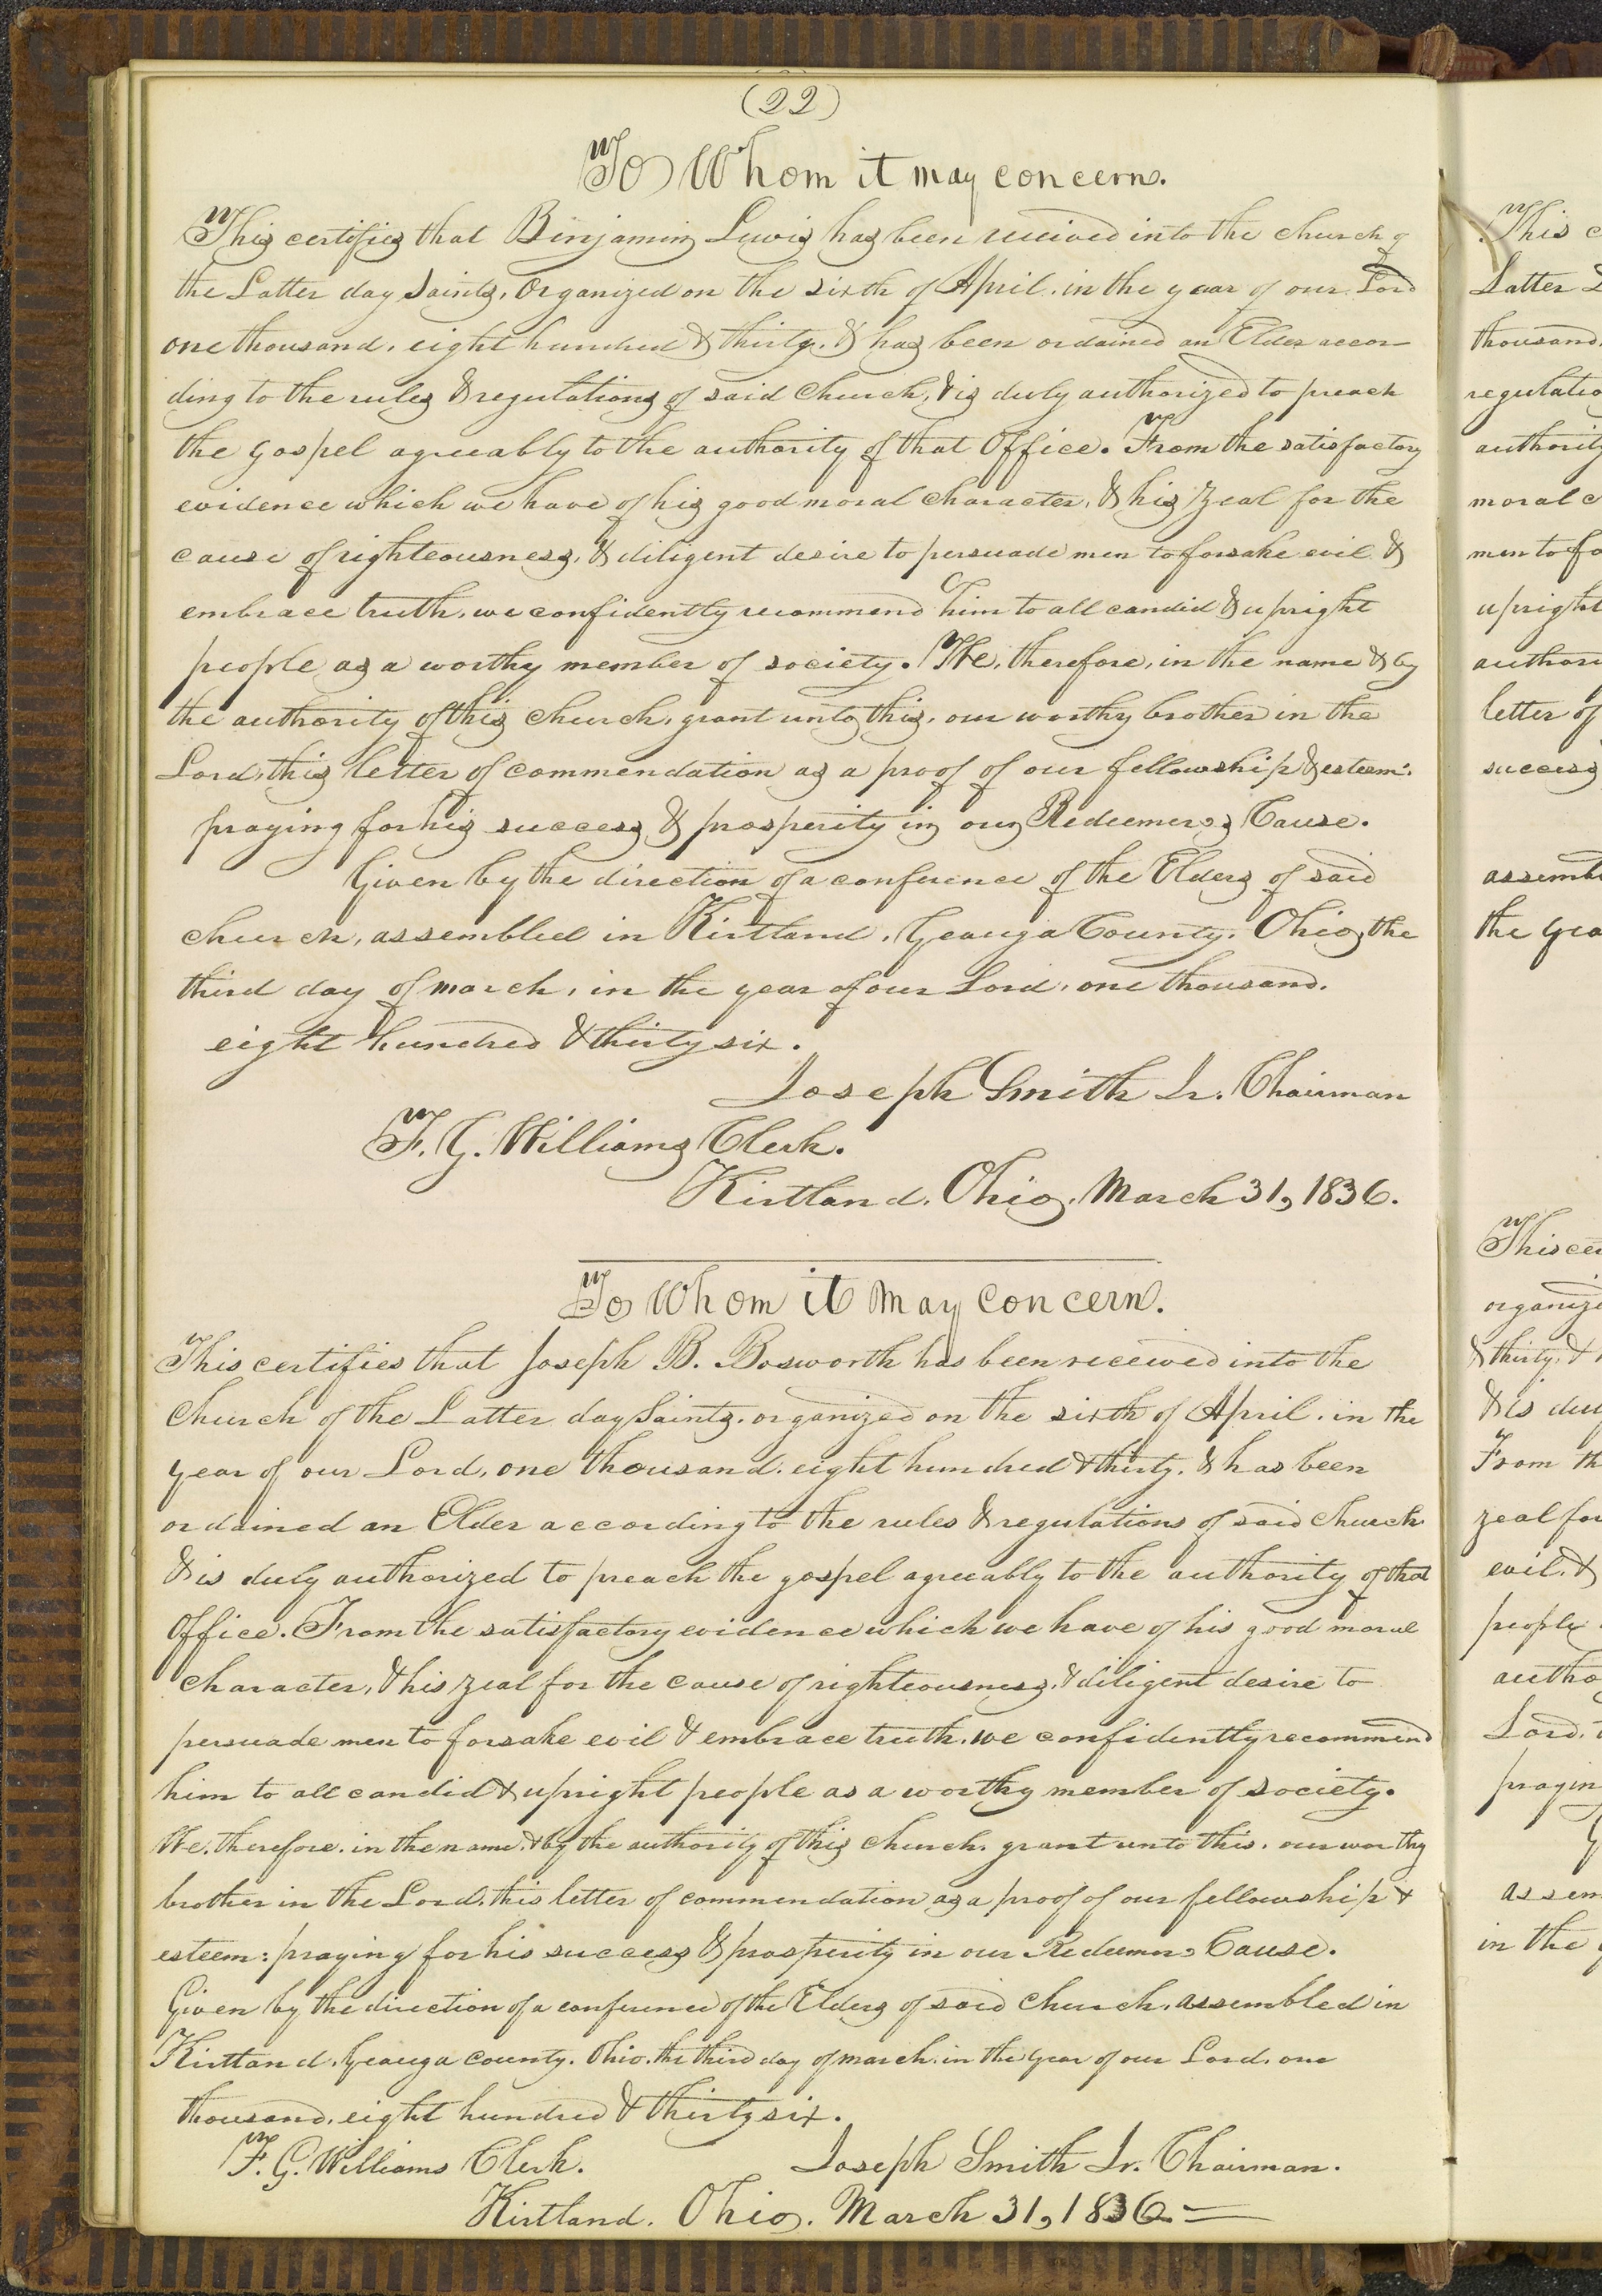 (22)
To Whom it may concern.
This certifies that Binjamin Lewis has been received into the church of
the Latter day Saints, Organized on the sixth of April, in the year of our Lord
one thousand, eight hundred & thirty, & has been ordained an Elder accor-
ding to the rules & regulations of said Church, & is duly authorized to preach
the gospel agreeably to the authority of that Office. From the satisfactory
evidence which we have of his good moral character, & his zeal for the
cause of righteousness, & diligent desire to persuade men to forsake evil &
embrace truth, we confidently recommend him to all candid & upright
people as a worthy member of society. We, therefore, in the name & by
the authority of this church, grant unto this, our worthy brother in the
Lord, this letter of commendation as a proof of our fellowship & esteem:
praying for his success & prosperity in our Redeemer's Cause.
Given by the direction of a conference of the Elders of said
church, assembled in Kirtland, Geauga County, Ohio, the
third day of march, in the year of our Lord, one thousand,
eight hundred & thirty six.
Joseph Smith Jr. Chairman
F. G. Williams Clerk.
Kirtland, Ohio, March 31, 1836.
To Whom it May Concern.
This certifies that Joseph B. Bosworth has been received into the
Church of the Latter day Saints, organized on the sixth of April, in the
year of our Lord, one thousand, eight hundred & thirty, & has been
ordained an Elder according to the rules & regulations of said church
& is duly authorized to preach the gospel agreeably to the authority of that
Office. From the satisfactory evidence which we have of his good moral
character, & his zeal for the cause of righteousness, & diligent desire to
persuade men to forsake evil & embrace truth, we confidently recommend
him to all candid & upright people as a worthy member of society.
We, therefore, in the name & by the authority of this church, grant unto this, our worthy
brother in the Lord, this letter of commendation as a proof of our fellowship &
esteem: praying for his success & prosperity in our Redeemers Cause.
Given by the direction of a conference of the Elders of said church, assembled in
Kirtland, Geauga county, Ohio, the third day of march, in the year of our Lord, one
thousand, eight hundred & thirty six.
F. G. Williams Clerk. Joseph Smith Jr. Chairman.
Kirtland, Ohio, March 31, 1836
This c
Latter D
thousand,
regulatio
authority
moral c
men to fo
upright
authori
letter of
success
assemb
the yea
This cer
organize
& thirty, &
& is du
From th
zeal for
evil, &
people
autho
Lord,
prayin
assem
in the